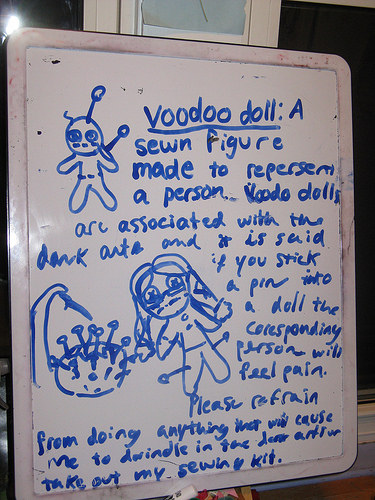 Voodoo doll: A
sewn figure
made to repersent
a person. Voodo dolls
are associated with the
dark arts and it is said
if you stick
a pin into
a doll the
coresponding
person will
feel pain.
Please refrain
from doing anything that will cause
me to dwindle in the dark
take out my sewing kit.